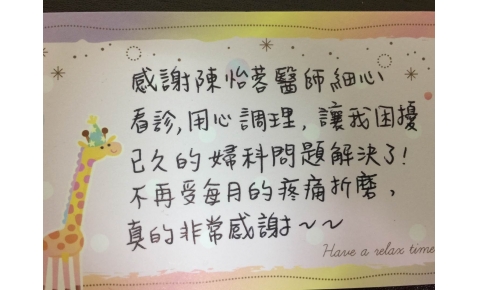 感謝陳怡蓉醫師細心
看診,用心調理,讓我困擾
已久的婦科問題解決了!
不再受每月的疼痛折磨,
真的非常感謝~~
Have a relax time